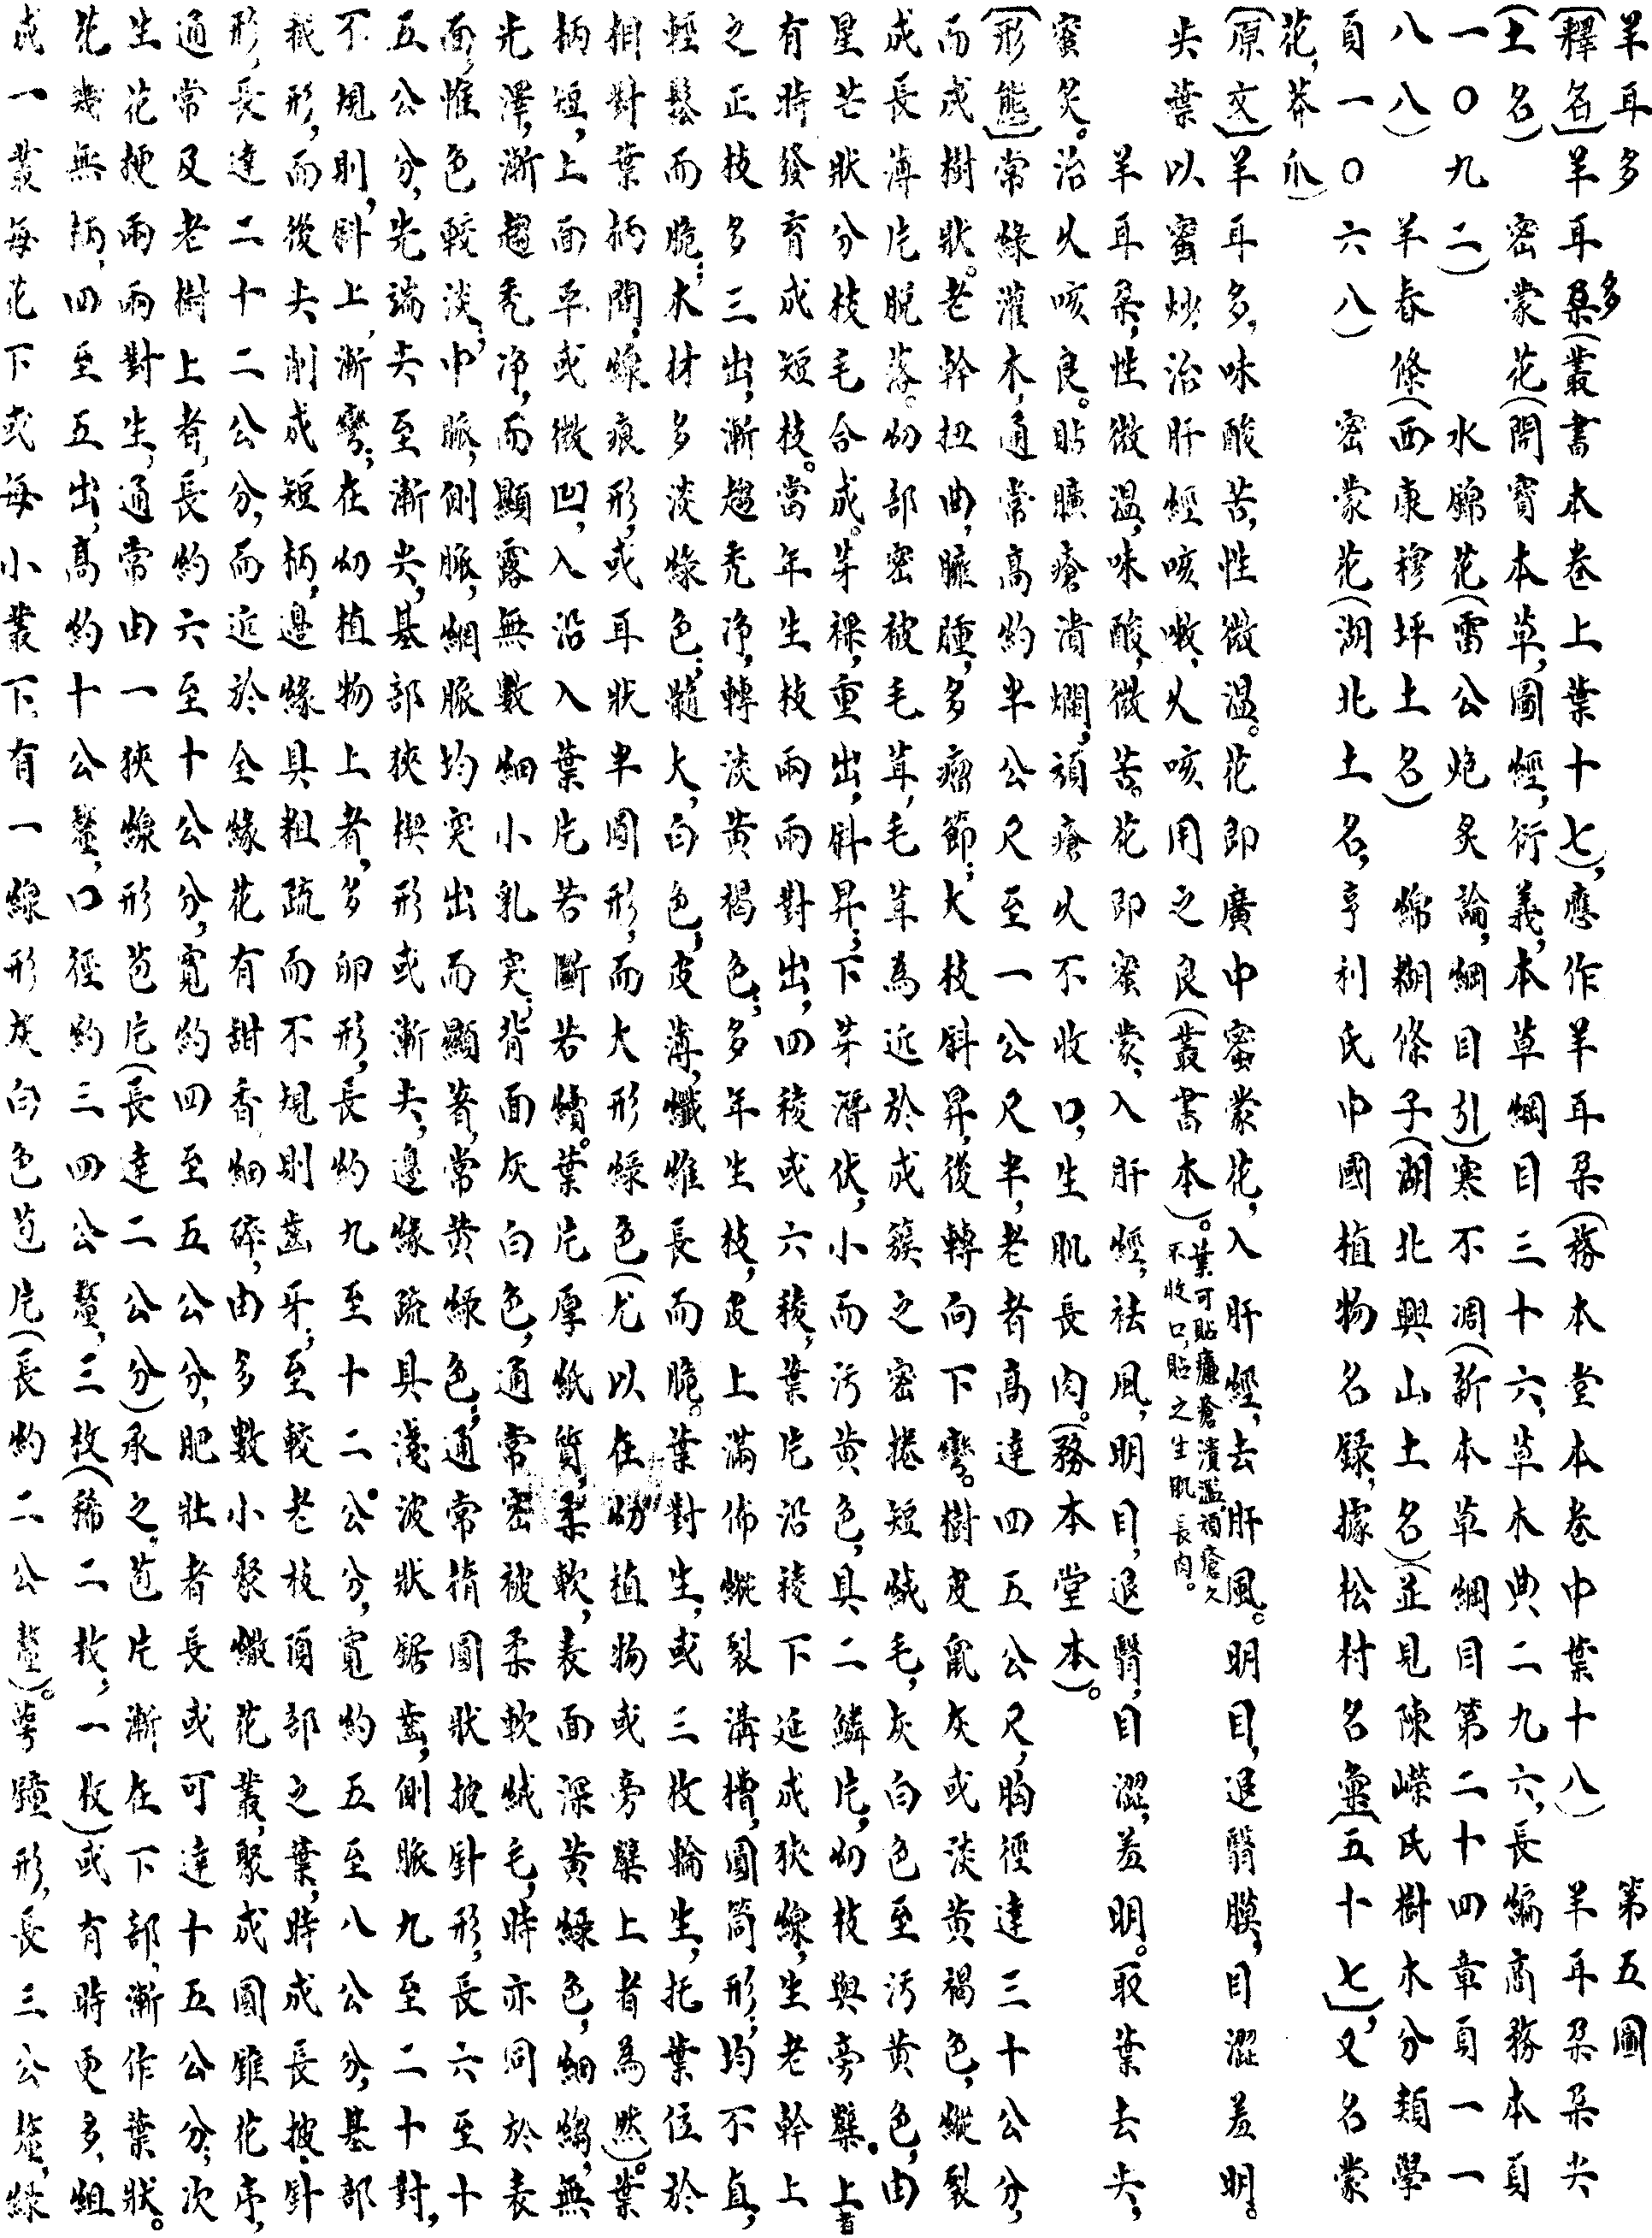 羊耳多 第五圖
(釋名)羊耳朵多(叢書本卷上葉十七),應作羊耳朵(務本堂本卷中葉十八) 羊耳朵朵尖
(土名)密蒙花(開寶本草,圖經,衍義,本草綱目三十六,草木典二九六,長編商務本頁
一〇九二) 水錦花(雷公炮炙論,綱目引)寒不凋(新本草綱目第二十四章頁一一
八八) 羊春條(西康穆坪土名) 綿糊條子(湖北興山土名)(並見陳嶸氏樹木分類學
頁一〇六八) 密蒙花(湖北土名,亨利氏中國植物名録,據松村名彙)(五十七),又名蒙
花,莽爪)
(原文)羊耳多,味酸苦,性微溫。花即廣中蜜蒙花,入肝經,去肝風。明目,退瞖膜,目澀羞明。
尖葉以蜜炒,治肝經咳嗽,火咳用之良(叢書本)。葉可貼臁瘡潰濫,頑瘡久不收口,貼之生肌長肉。
羊耳朵,性微溫,味酸,微苦。花即蜜蒙,入肝經,祛風,明目,退瞖,目澀,羞明。取葉去尖,
蜜炙。治火咳良。貼臁瘡潰爛,頑瘡久不收口,生肌長肉。(務本堂本)。
(形態)常綠灌木,通常高約半公尺至一公尺半,老者高達四五公尺,胸徑達三十公分,
而成樹狀。老幹扭曲,臃腫,多瘤節;大枝斜昇,後轉向下彎。樹皮灰或淡黃褐色,縱裂
成長薄片脫落。幼部密被毛茸,毛茸為近於成簇之密捲短絨毛,灰白色至污黃色,由
星芒狀分枝毛合成。芽裸,重出,斜昇;下芽潛伏,小而污黃色,具二鱗片,幼枝與旁蘖上者
有時發育成短枝。當年生枝兩兩對出,四稜或六稜,葉片沿稜下延成狹線,生老幹上
之正枝多三出,漸趨禿净,轉淡黃褐色;多年生枝,皮上滿佈縱裂溝槽,圓筒形;均不直,
輕鬆而脆;木材多淡綠色;髓大,白色,皮薄,纖維長而脆。葉對生,或三枚輪生,托葉位於
相對葉柄間,線痕形,或耳狀半圓形,而大形綠色(尤以在幼植物或旁蘖上者為然)。葉
柄短,上面平或微凹,入沿入葉片若斷若續。葉片厚紙質,柔軟,表面深黃綠色,細縐,無
光澤,漸趨禿净,而顯露無數細小乳突;背面灰白色,通常密被柔軟絨毛,時亦同於表
面,惟色較淡;中脈,側脈,網脈均突出而顯著,常黃綠色;通常橢圓狀披針形,長六至十
五公分,先端尖至漸尖,基部狹楔形或漸尖,邊緣疏具淺波狀鋸齒,側脈九至二十對,
不規則,斜上,漸彎;在幼植物上者,多卵形,長約九至十二公分,寬約五至八公分,基部
截形,而後尖削成短柄,邊緣具粗疏而不規則齒牙;至較老枝頂部之葉,時成長披針
形,長達二十二公分,而近於全緣花有甜香,細碎,由多數小聚繖花叢,聚成圓錐花序,
通常及老樹上者,長約六至十公分,寬約四至五公分,肥壯者長或可達十五公分;次
生花梗兩兩對生,通常由一狹線形苞片(長達二公分)承之,苞片漸在下部,漸作葉狀。
花幾無柄,四至五出,高約十公釐,口徑約三四公釐,三枚(稀二枚,一枚)或有時更多,組
成一叢每花下或每小叢下有一線形灰白色苞片(長約二公釐)。萼鐘形,長三公釐,綠